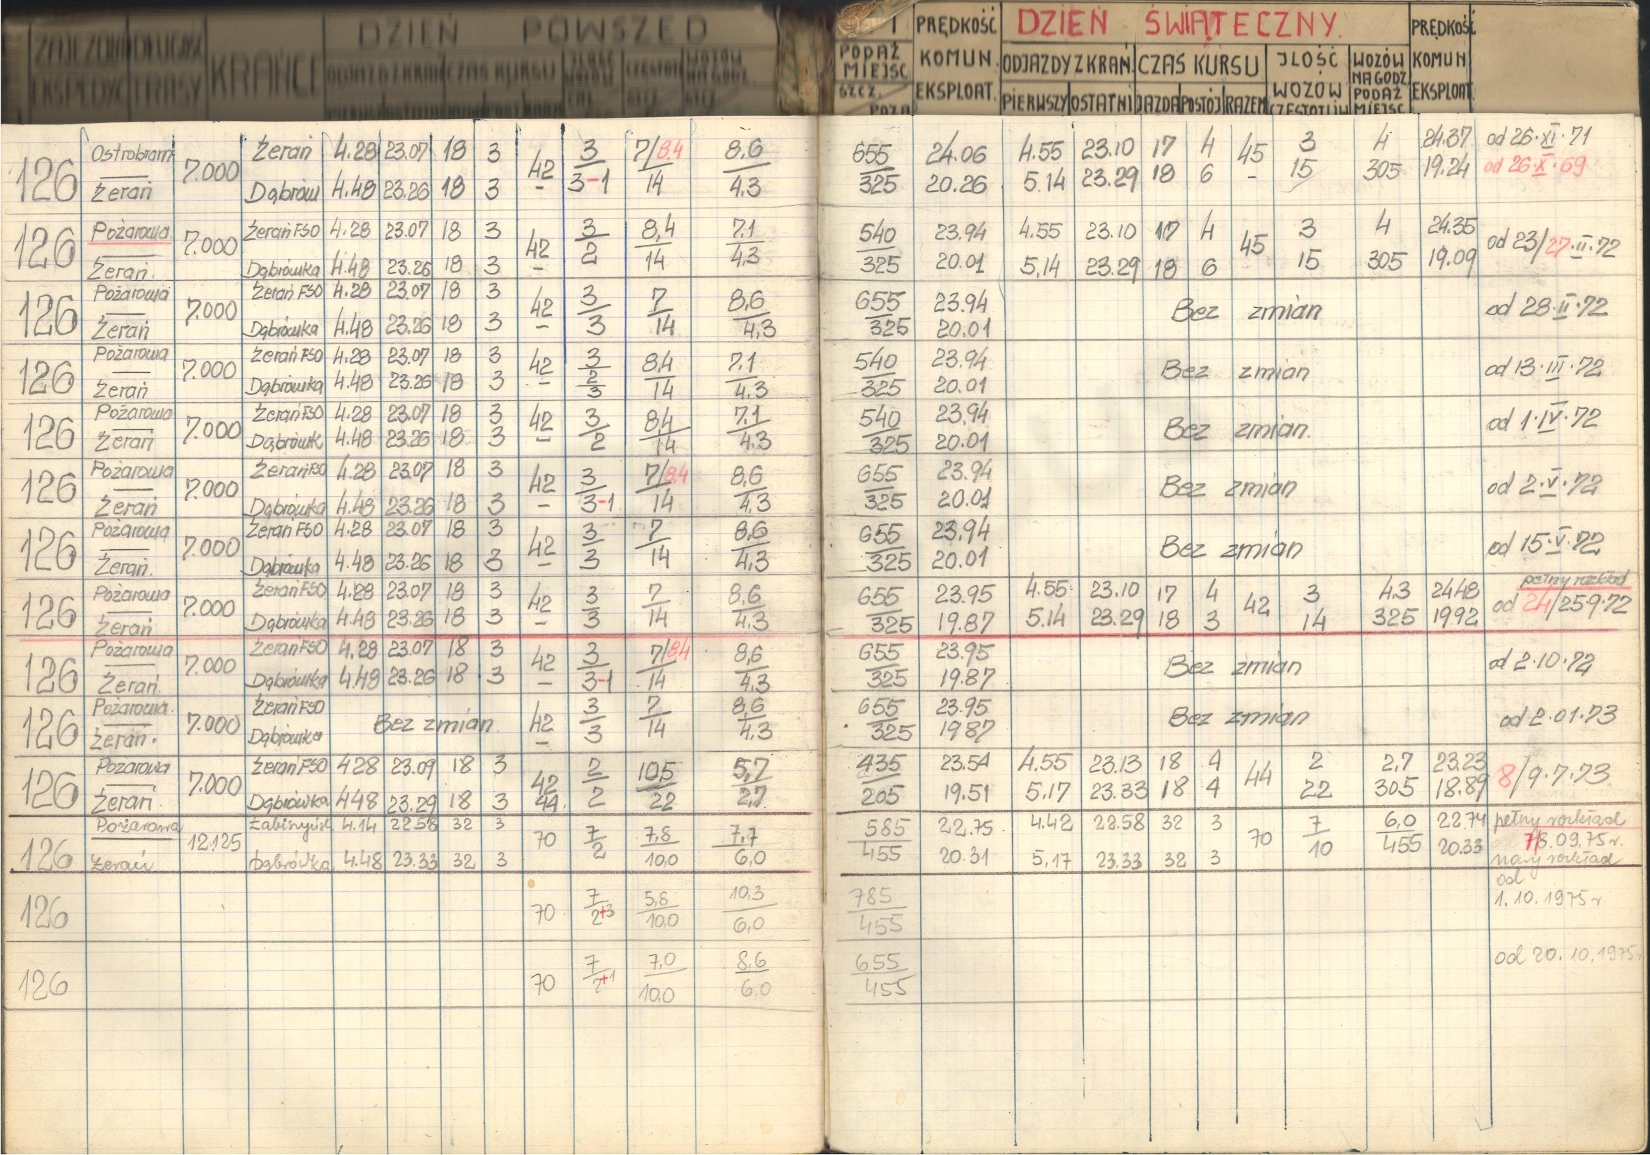 DZIEŃ POWSZED
KRAŃCE
CZAS KURSU
PODAŻ MIEJSC
PRĘDKOŚĆ
KOMUN.
EKSPLOAT.
DZIEŃ ŚWIĄTECZNY.
ODJAZDY Z KRAŃ.
PIERWSZY OSTATNI
CZAS KURSU
JAZDA POSTÓJ RAZEM
JLOŚĆ
WOZÓW
WOZÓW
NA GODZ
PODAŻ
MIEJSC
PRĘDKOŚĆ
KOMUN
EKSPLOAT
126 Ostrobram 7.000 Żerań 4.28 23.07 18 3 42 3 7/8.4 8,6 655 24.06 4.55 23.10 17 4 45 3 4 24.37 od 26.XI.71
Żerań Dąbrów 4.48 23.26 18 3 – 3-1 14 4.3 325 20.26 5.14 23.29 18 6 – 15 305 19.24 od 26.X.69
126 Pożarowa 7.000 Żerań FSO 4.28 23.07 18 3 42 3 8,4 7.1 540 23.94 4.55 23.10 17 4 45 3 4 24.35 od 23/27.II.72
Żerań. Dąbrówka 4.48 23.26 18 3 – 2 14 4,3 325 20.01 5,14 23.29 18 6 15 305 19.09
126 Pożarowa 7.000 Żerań FSO 4.28 23.07 18 3 42 3 7 8,6 655 23.94 Bez zmian od 28.II.72
Żerań Dąbrówka 4.48 23.26 18 3 – 3 14 4,3 325 20.01
126 Pożarowa 7.000 Żerań FSO 4.28 23.07 18 3 42 3 8,4 7.1 540 23.94 Bez zmian od 13.III.72
Żerań Dąbrówka 4.48 23.26 18 3 – 2 3 14 4.3 325 20.01
126 Pożarowa 7.000 Żerań FSO 4.28 23.07 18 3 42 3 8,4 7.1 540 23.94 Bez zmian. od 1.IV.72
Żerań Dąbrówk 4.48 23.26 18 3 – 2 14 4.3 325 20.01
126 Pożarowa 7.000 Żerań FSO 4.28 23.07 18 3 42 3 7/8.4 8,6 655 23.94 Bez zmian od 2.V.72
Żerań Dąbrówka 4.48 23.26 18 3 – 3-1 14 4,3 325 20.01
126 Pożarowa 7.000 Żerań FSO 4.28 23.07 18 3 42 3 7 8,6 655 23.94 Bez zmian od 15.V.72
Żerań. Dąbrówka 4.48 23.26 18 3 – 3 14 4,3 325 20.01
126 Pożarowa 7.000 Żerań FSO 4.28 23.07 18 3 42 3 7 8,6 655 23.95 4.55 23.10 17 4 42 3 4.3 24.48 pełny rozkład
Żerań Dąbrówka 4.48 23.26 18 3 – 3 14 4.3 325 19.87 5.14 23.29 18 3 14 325 19.92 od 24/25.9.72
126 Pożarowa 7.000 Żerań FSO 4.28 23.07 18 3 42 3 7/8.4 8,6 655 23.95 Bez zmian od 2.10.72
Żerań. Dąbrówka 4.48 23.26 18 3 – 3-1 14 4,3 325 19.87
126 Pożarowa. 7.000 Żerań FSO Bez zmian. 42 3 7 8,6 655 23.95 Bez zmian od 2.01.73
Żerań. Dąbrówka – 3 14 4.3 325 19.87
126 Pożarowa 7.000 Żerań FSO 4.28 23.09 18 3 42 2 10,5 5,7 435 23.54 4.55 23.13 18 4 44 2 2,7 23.23 8/9.7.73
Żerań. Dąbrówka 4.48 23.29 18 3 44. 2 22 2,7 205 19.51 5.17 23.33 18 4 22 305 18.89
126 Pożarowa 12.125 Żabińs 4.14 22.58 32 3 70 7 7,8 7,7 585 22.75 4.42 22.58 32 3 70 7 6,0 22.74 pełny rozkład
Żerań Dąbrówka 4.48 23.33 32 3 2 10,0 6,0 455 20.31 5,17 23.33 32 3 10 455 20.33 7/8.09.75 r.
nowy rozkład
126 70 7 5,8 10,3 785 od
2+3 10,0 6,0 455 1.10.1975 r
126 70 7 7,0 8,6 655 od 20.10.1975 r
2+1 10,0 6,0 455